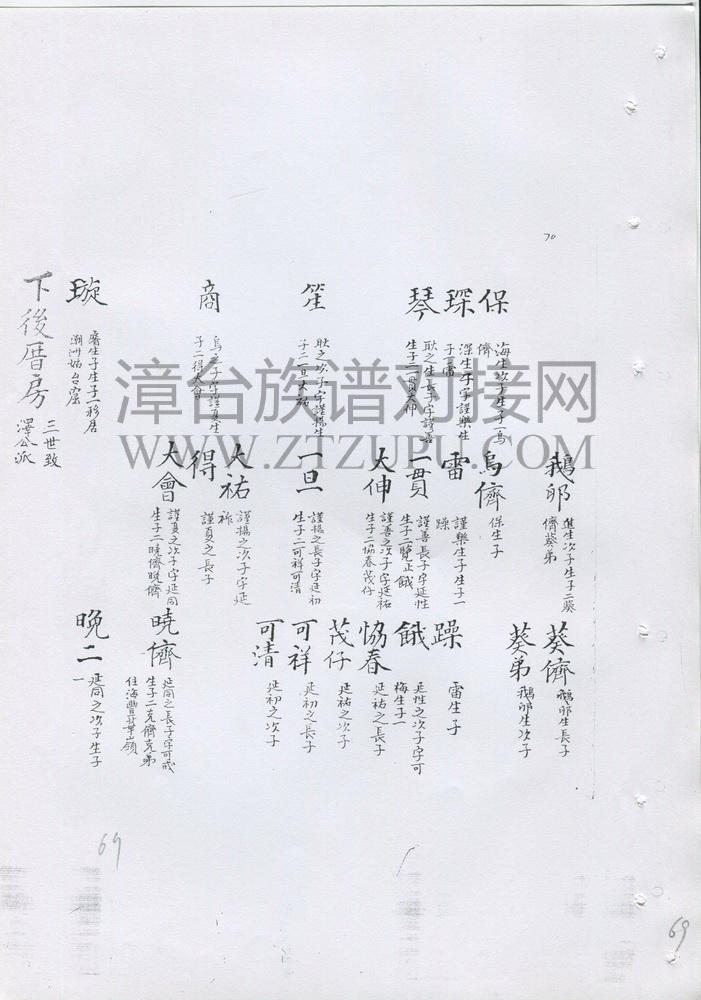 70
保
海生次子生子一烏
儕
琛
深生子字謹樂生
子一雷
琴
耿之生長子字謹善
生子二一貫大伸
笙
耿之次子字謹揚生
子二一旦大祐
商
烏之子字謹夏生
子二得大會
璇
生子生子一移居
潮州
下後厝房
三世致
澤公派
漳台族谱对接网
WWW.ZTZUPU.COM
鵝卵
進生次子生子二葵
儕葵弟
烏儕
保生子
雷
謹樂生子生子一
躁
一貫
謹善長子字延性
生子二覽正餓
大伸
謹善之次子字延祐
生子二協春茂仔
一旦
謹揚之長子字延初
生子二可祥可清
大祐
謹揚之次子字延
祚
得
謹夏之長子
大會
謹夏之次子字延同
生子二曉儕晚儕
葵儕
鵝卵生長子
葵弟
鵝卵生次子
躁
雷生子
餓
延性之次子字可
梅生子一
協春
延祐之長子
茂仔
延祐之次子
可祥
延初之長子
可清
延初之次子
曉儕
延同之長子字可戒
生子二克儕克弟
住海豐
晚二
延同之次子生子
一
69
69